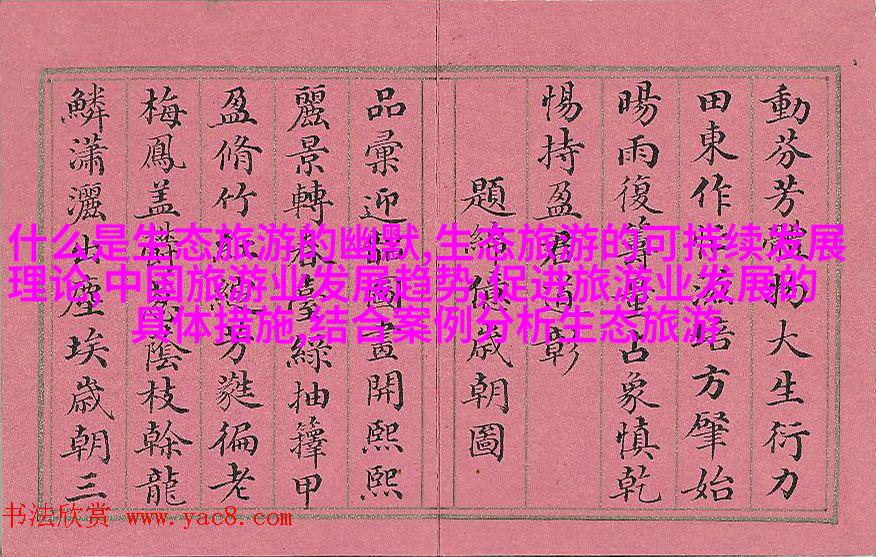 什么是生态旅游的幽默,生态旅游的可持续发展
理论,中国旅游业发展趋势,促进旅游业发展的
具体措施,结合案例分析生态旅游
動芬芳物大生衍力
田東作培方肇始
暘雨復占象慎乾
惕持盈彰
題億歲朝圖
品彙迎圖畫開熙熙
麗景轉綠抽籜甲
盈脩竹芳蕤徧老
梅鳳蓋蔭枝幹龍
鱗瀟灑出塵埃歲朝三
书法欣赏 www.yac8.com